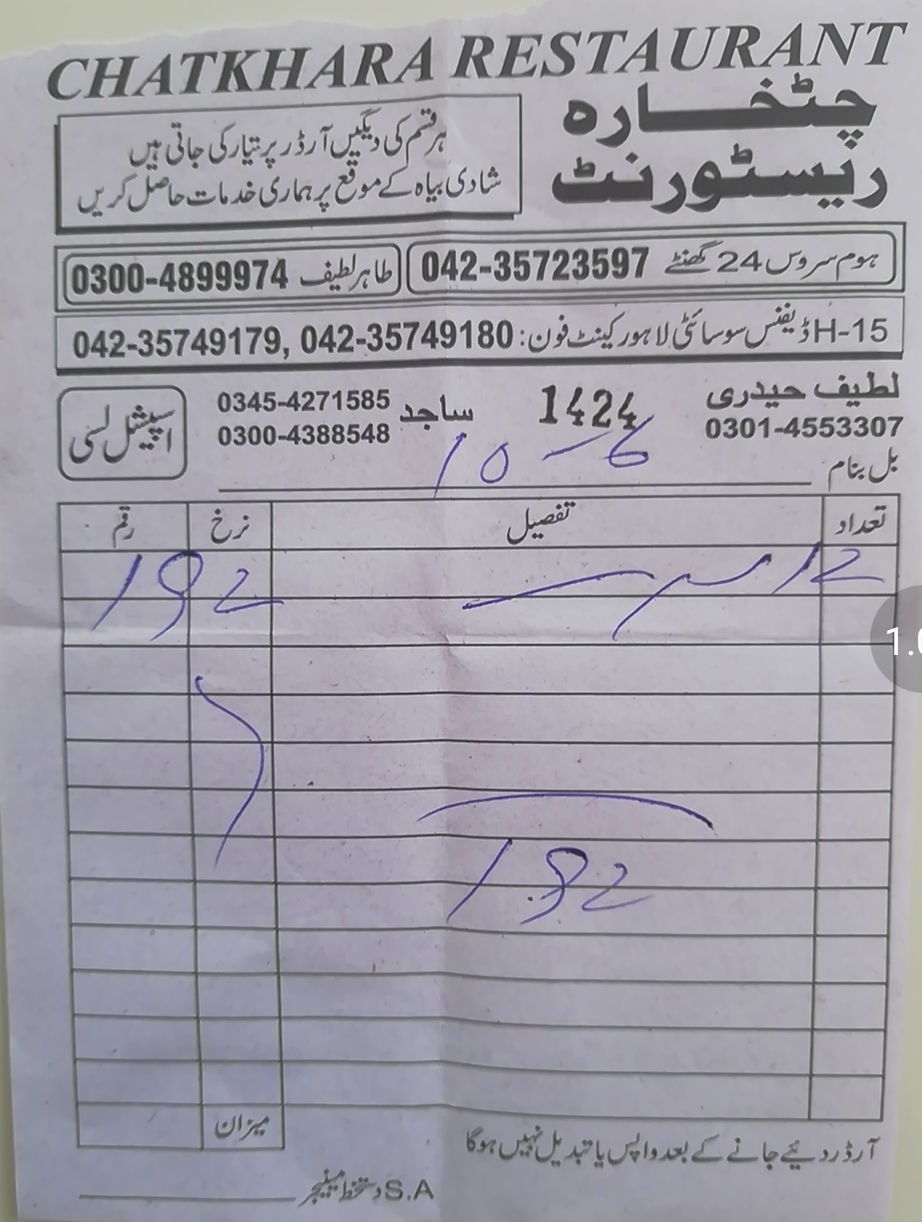 CHATKHARA RESTAURANT
چٹخارہ
ریسٹورنٹ
ہر قسم کی دیگیں آرڈر پر تیار کی جاتی ہیں
شادی بیاہ کے موقع پر ہماری خدمات حاصل کریں
ہوم سروس 24 گھنٹے 042-35723597
طاہر لطیف 0300-4899974
H-15 ڈیفنس سوسائٹی لاہور کینٹ فون: 042-35749180 ,042-35749179
لطیف حیدری
0301-4553307
1424
ساجد
0345-4271585
0300-4388548
اسپیشل لسی
بل بنام
10-6
تعداد تفصیل نرخ رقم
12 192
192
میزان
آرڈر دئیے جانے کے بعد واپس یا تبدیل نہیں ہوگا
S.A دستخط مینیجر
1.0